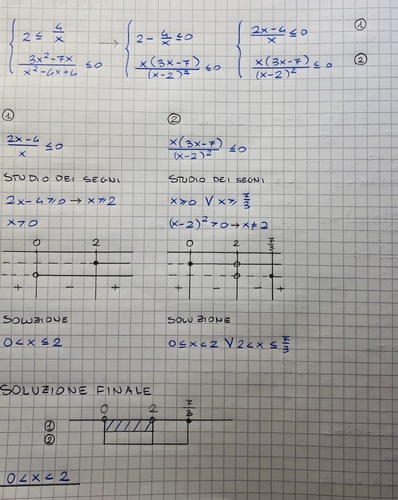 { 2 ≤ 4/x → { 2 - 4/x ≤ 0 { (2x-4)/x ≤ 0 ①
{ (3x²-7x)/(x²-4x+4) ≤ 0 { x(3x-7)/(x-2)² ≤ 0 { x(3x-7)/(x-2)² ≤ 0 ②
①
(2x-4)/x ≤ 0
STUDIO DEI SEGNI
2x-4 ≥ 0 → x ≥ 2
x > 0
0 2
+ - +
SOLUZIONE
0 < x ≤ 2
②
x(3x-7)/(x-2)² ≤ 0
STUDIO DEI SEGNI
x ≥ 0 V x ≥ 7/3
(x-2)² > 0 → x ≠ 2
0 2 7/3
+ - - +
SOLUZIONE
0 ≤ x < 2 V 2 < x ≤ 7/3
SOLUZIONE FINALE
0 2 7/3
①
②
0 < x < 2